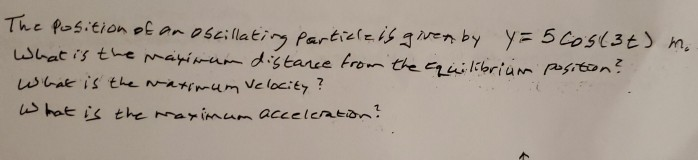 The Position of an oscillating particle is given by y = 5 Cos(3t) m.
What is the maximum distance from the equilibrium position?
What is the maximum velocity?
What is the maximum acceleration?